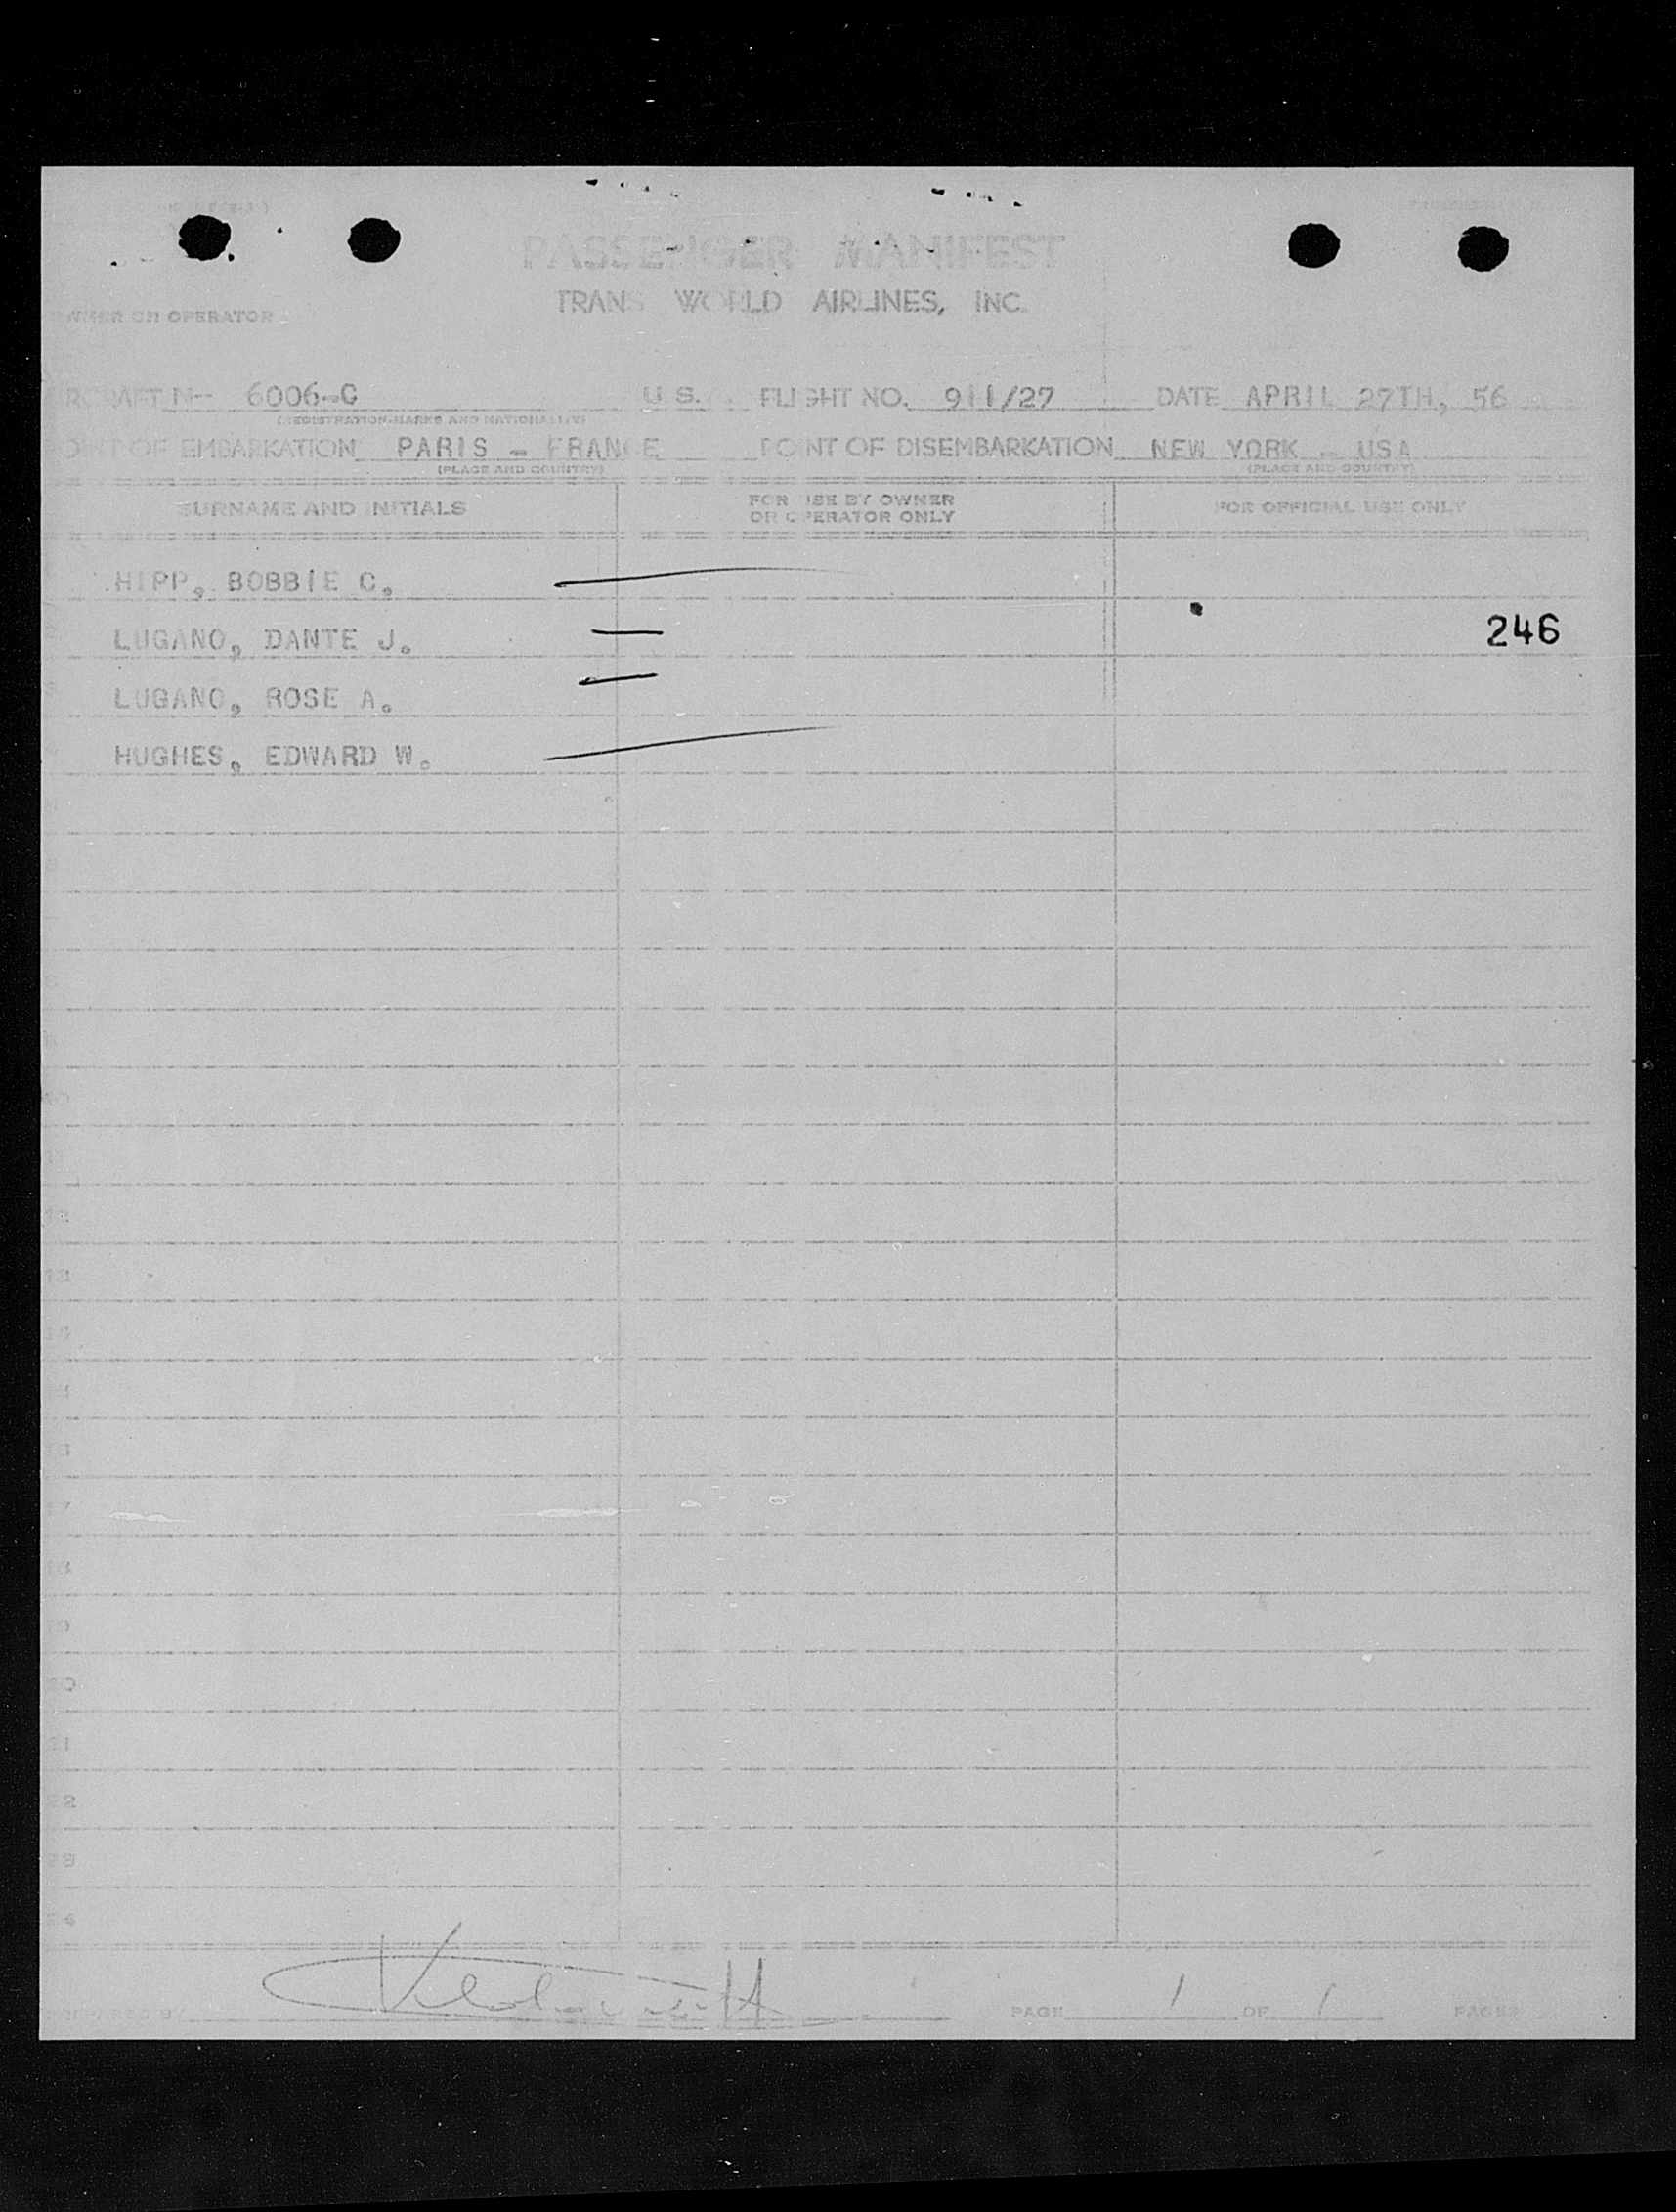 PASSENGER MANIFEST
TRANS WORLD AIRLINES, INC.
OWNER OR OPERATOR
AIRCRAFT N-- 6006-C U.S. FLIGHT NO. 911/27 DATE APRIL 27TH, 56
(REGISTRATION-MARKS AND NATIONALITY)
POINT OF EMBARKATION PARIS - FRANCE POINT OF DISEMBARKATION NEW YORK - USA
(PLACE AND COUNTRY) (PLACE AND COUNTRY)
SURNAME AND INITIALS FOR USE BY OWNER OR OPERATOR ONLY FOR OFFICIAL USE ONLY
HIPP, BOBBIE C.
LUGANO, DANTE J. 246
LUGANO, ROSE A.
HUGHES, EDWARD W.
13
17
18
19
20
21
22
23
24
PREPARED BY PAGE 1 OF 1 PAGES